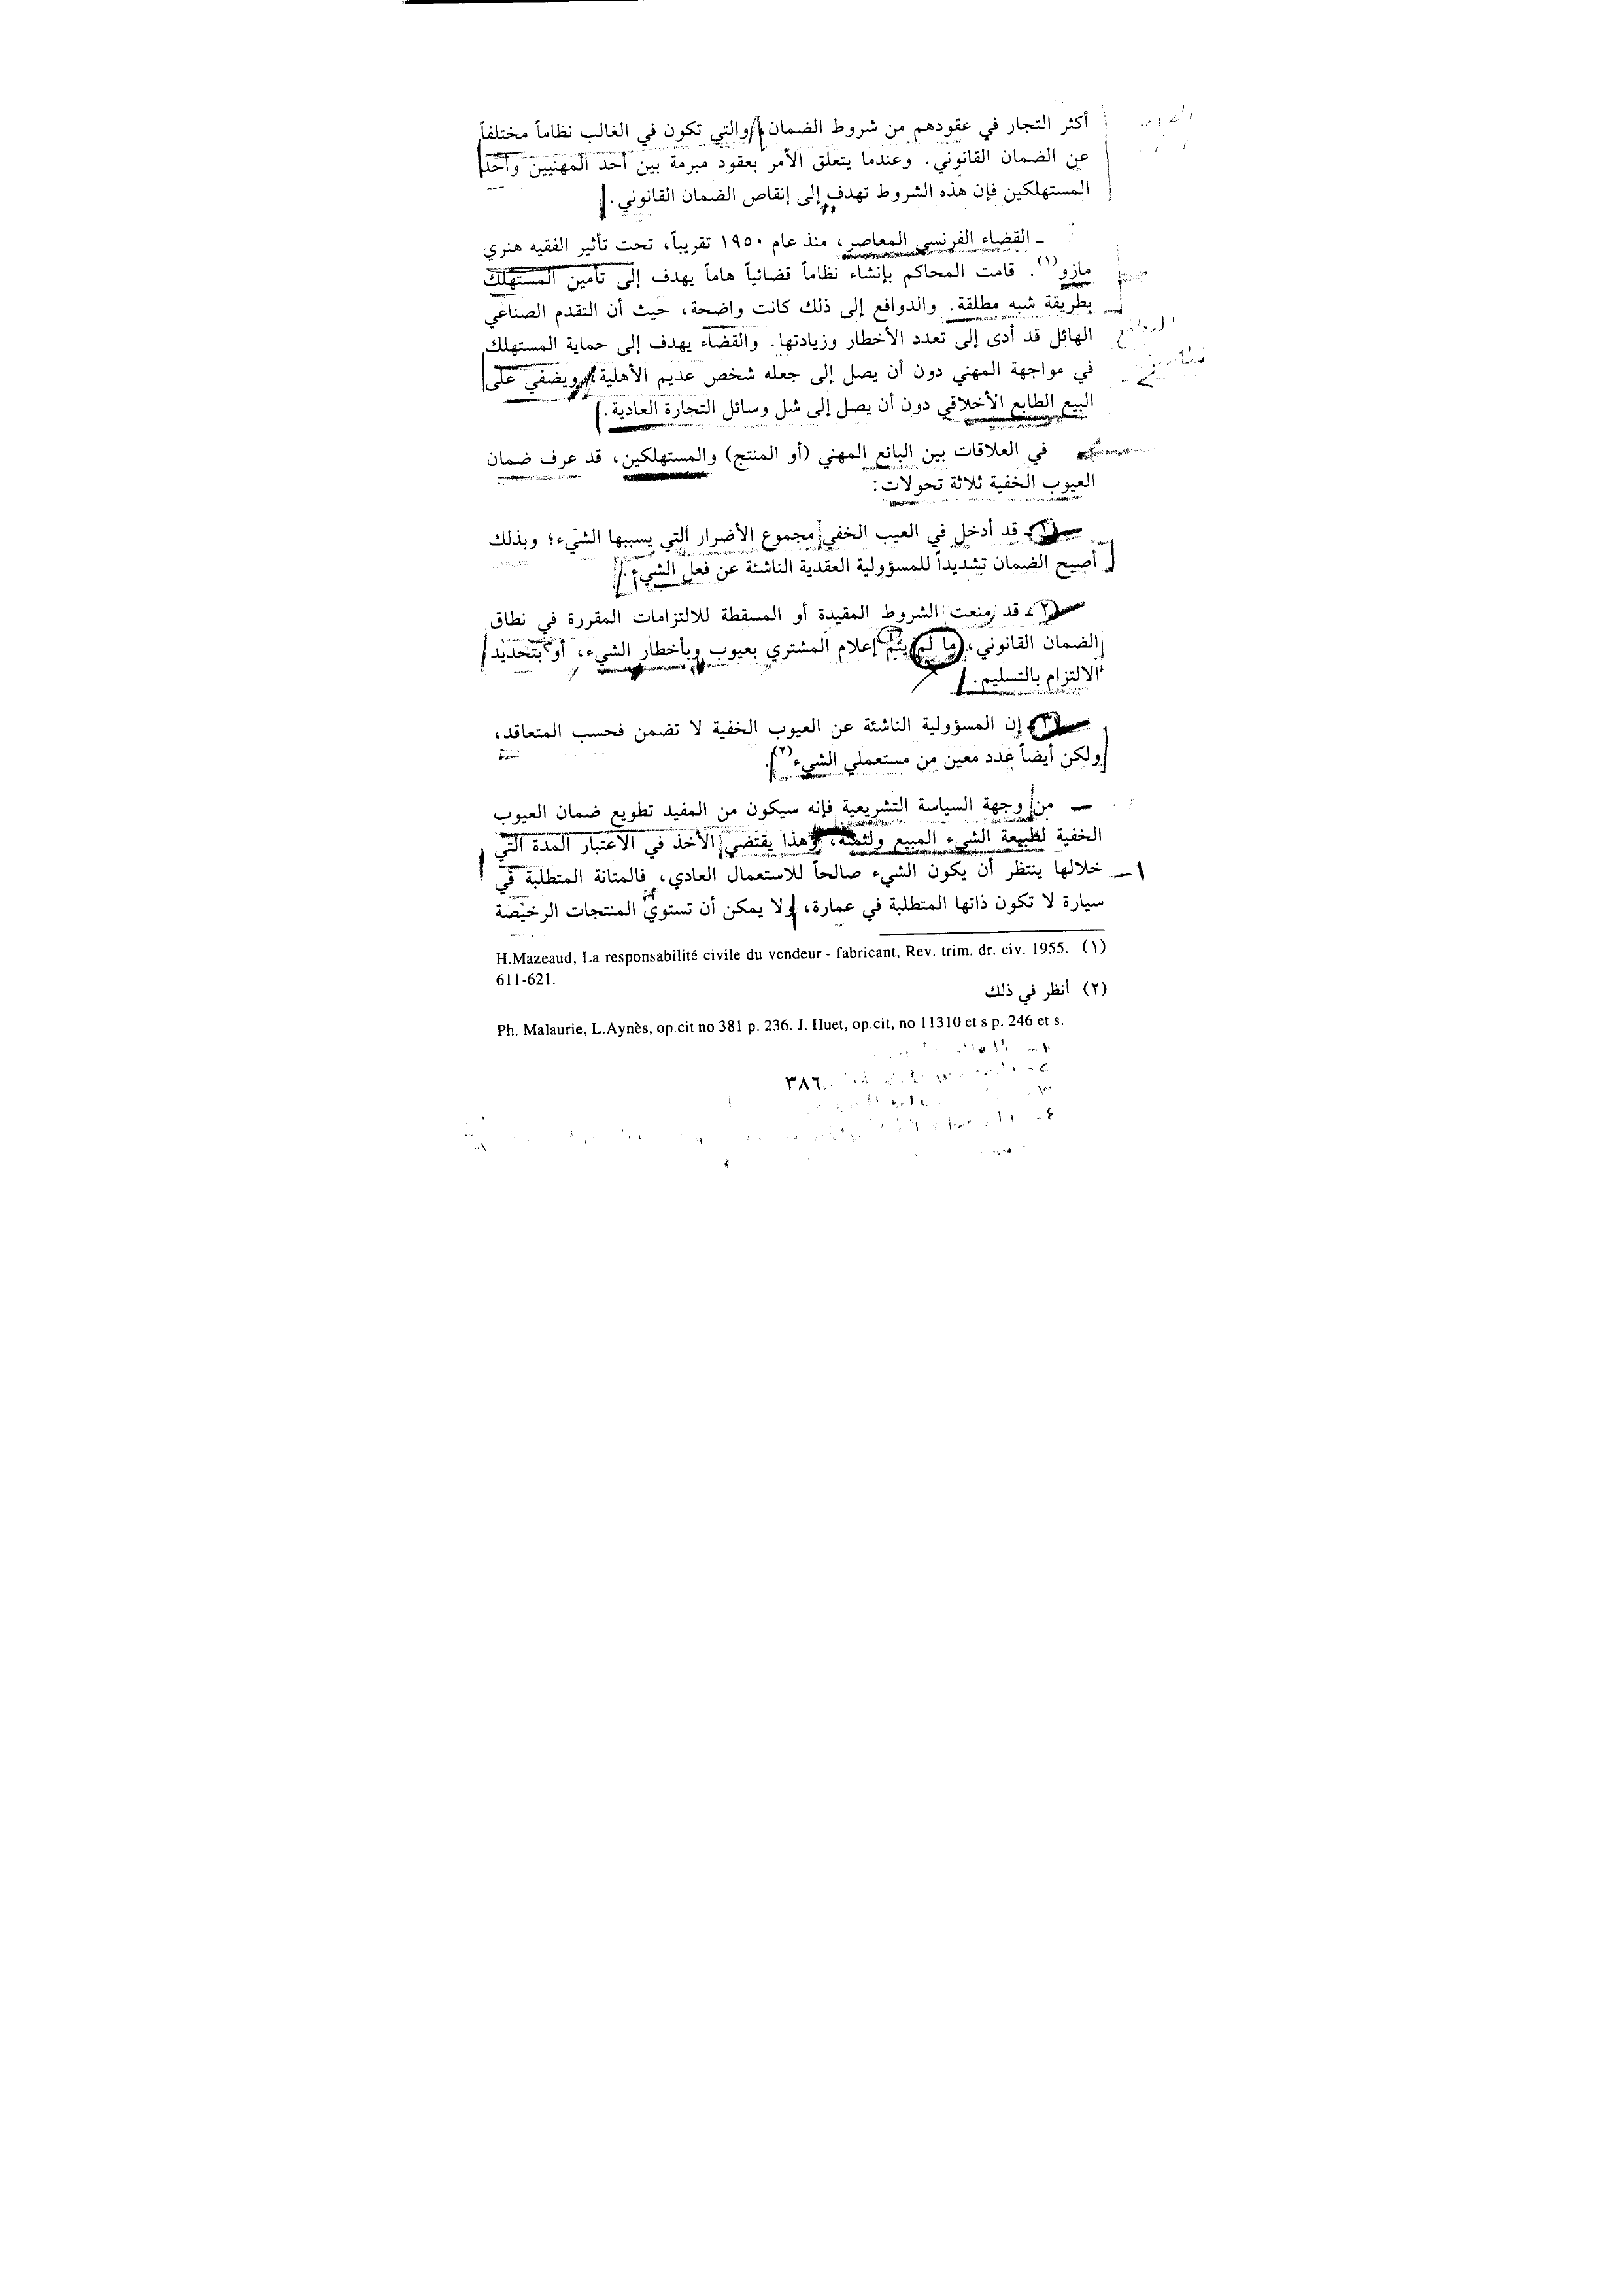 أكثر التجار في عقودهم من شروط الضمان، والتي تكون في الغالب نظاماً مختلفاً
عن الضمان القانوني. وعندما يتعلق الأمر بعقود مبرمة بين أحد المهنيين وأحد
المستهلكين فإن هذه الشروط تهدف إلى إنقاص الضمان القانوني.
ـ القضاء الفرنسي المعاصر، منذ عام ١٩٥٠ تقريباً، تحت تأثير الفقيه هنري
مازو(١). قامت المحاكم بإنشاء نظاماً قضائياً هاماً يهدف إلى تأمين المستهلك
بطريقة شبه مطلقة. والدوافع إلى ذلك كانت واضحة، حيث أن التقدم الصناعي
الهائل قد أدى إلى تعدد الأخطار وزيادتها. والقضاء يهدف إلى حماية المستهلك
في مواجهة المهني دون أن يصل إلى جعله شخص عديم الأهلية، ويضفي على
البيع الطابع الأخلاقي دون أن يصل إلى شل وسائل التجارة العادية.
في العلاقات بين البائع المهني (أو المنتج) والمستهلكين، قد عرف ضمان
العيوب الخفية ثلاثة تحولات:
١ـ قد أدخل في العيب الخفي مجموع الأضرار التي يسببها الشيء؛ وبذلك
أصبح الضمان تشديداً للمسؤولية العقدية الناشئة عن فعل الشيء.
٢ـ قد منعت الشروط المقيدة أو المسقطة للالتزامات المقررة في نطاق
الضمان القانوني، ما لم يتم إعلام المشتري بعيوب وبأخطار الشيء، أو بتحديد
الالتزام بالتسليم.
٣ـ إن المسؤولية الناشئة عن العيوب الخفية لا تضمن فحسب المتعاقد،
ولكن أيضاً عدد معين من مستعملي الشيء(٢).
ـ من وجهة السياسة التشريعية فإنه سيكون من المفيد تطويع ضمان العيوب
الخفية لطبيعة الشيء المبيع ولثمنه، وهذا يقتضي الأخذ في الاعتبار المدة التي
خلالها ينتظر أن يكون الشيء صالحاً للاستعمال العادي، فالمتانة المتطلبة في
سيارة لا تكون ذاتها المتطلبة في عمارة، ولا يمكن أن تستوي المنتجات الرخيصة
(١) H.Mazeaud, La responsabilité civile du vendeur - fabricant, Rev. trim. dr. civ. 1955.
611-621.
(٢) أنظر في ذلك
Ph. Malaurie, L.Aynès, op.cit no 381 p. 236. J. Huet, op.cit, no 11310 et s p. 246 et s.
٣٨٦